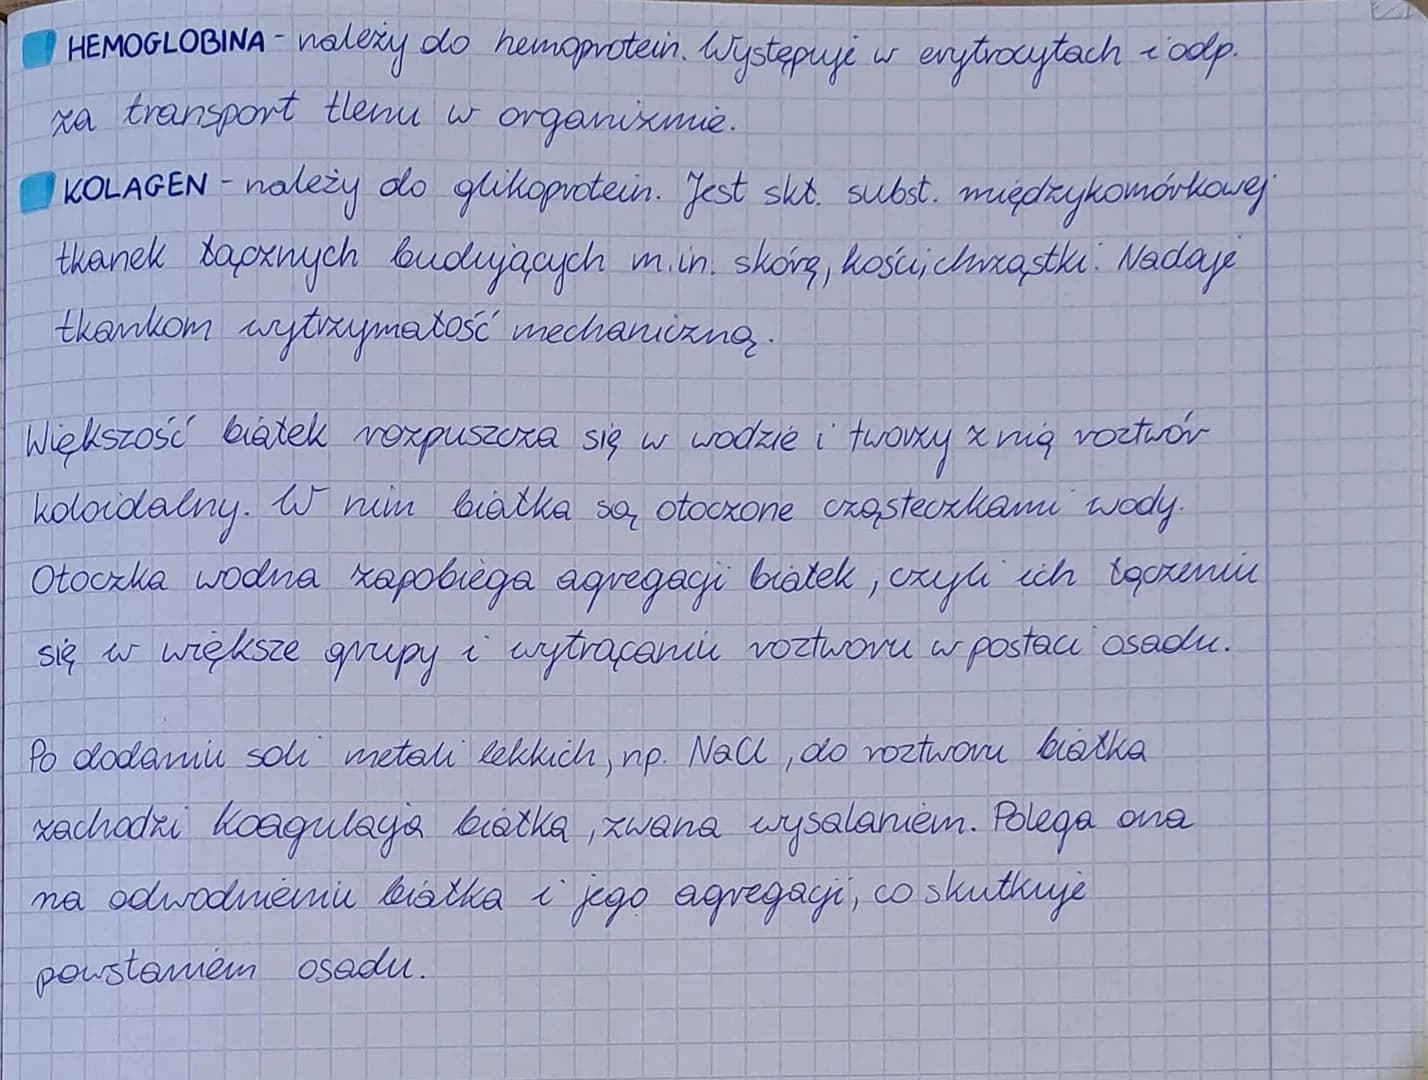 HEMOGLOBINA - należy do hemoprotein. Występuje w erytrocytach i odp.
za transport tlenu w organizmie.
KOLAGEN - należy do glikoprotein. Jest skł. subst. międzykomórkowej
tkanek łącznych budujących m.in. skórę, kości, chrząstki. Nadaje
tkankom wytrzymałość mechaniczną.
Większość białek rozpuszcza się w wodzie i tworzy z nią roztwór
koloidalny. W nim białka są otoczone cząsteczkami wody.
Otoczka wodna zapobiega agregacji białek, czyli ich łączeniu
się w większe grupy i wytrącaniu roztworu w postaci osadu.
Po dodaniu soli metali lekkich, np. NaCl, do roztworu białka
zachodzi koagulacja białka, zwana wysalaniem. Polega ona
na odwodnieniu białka i jego agregacji, co skutkuje
powstaniem osadu.